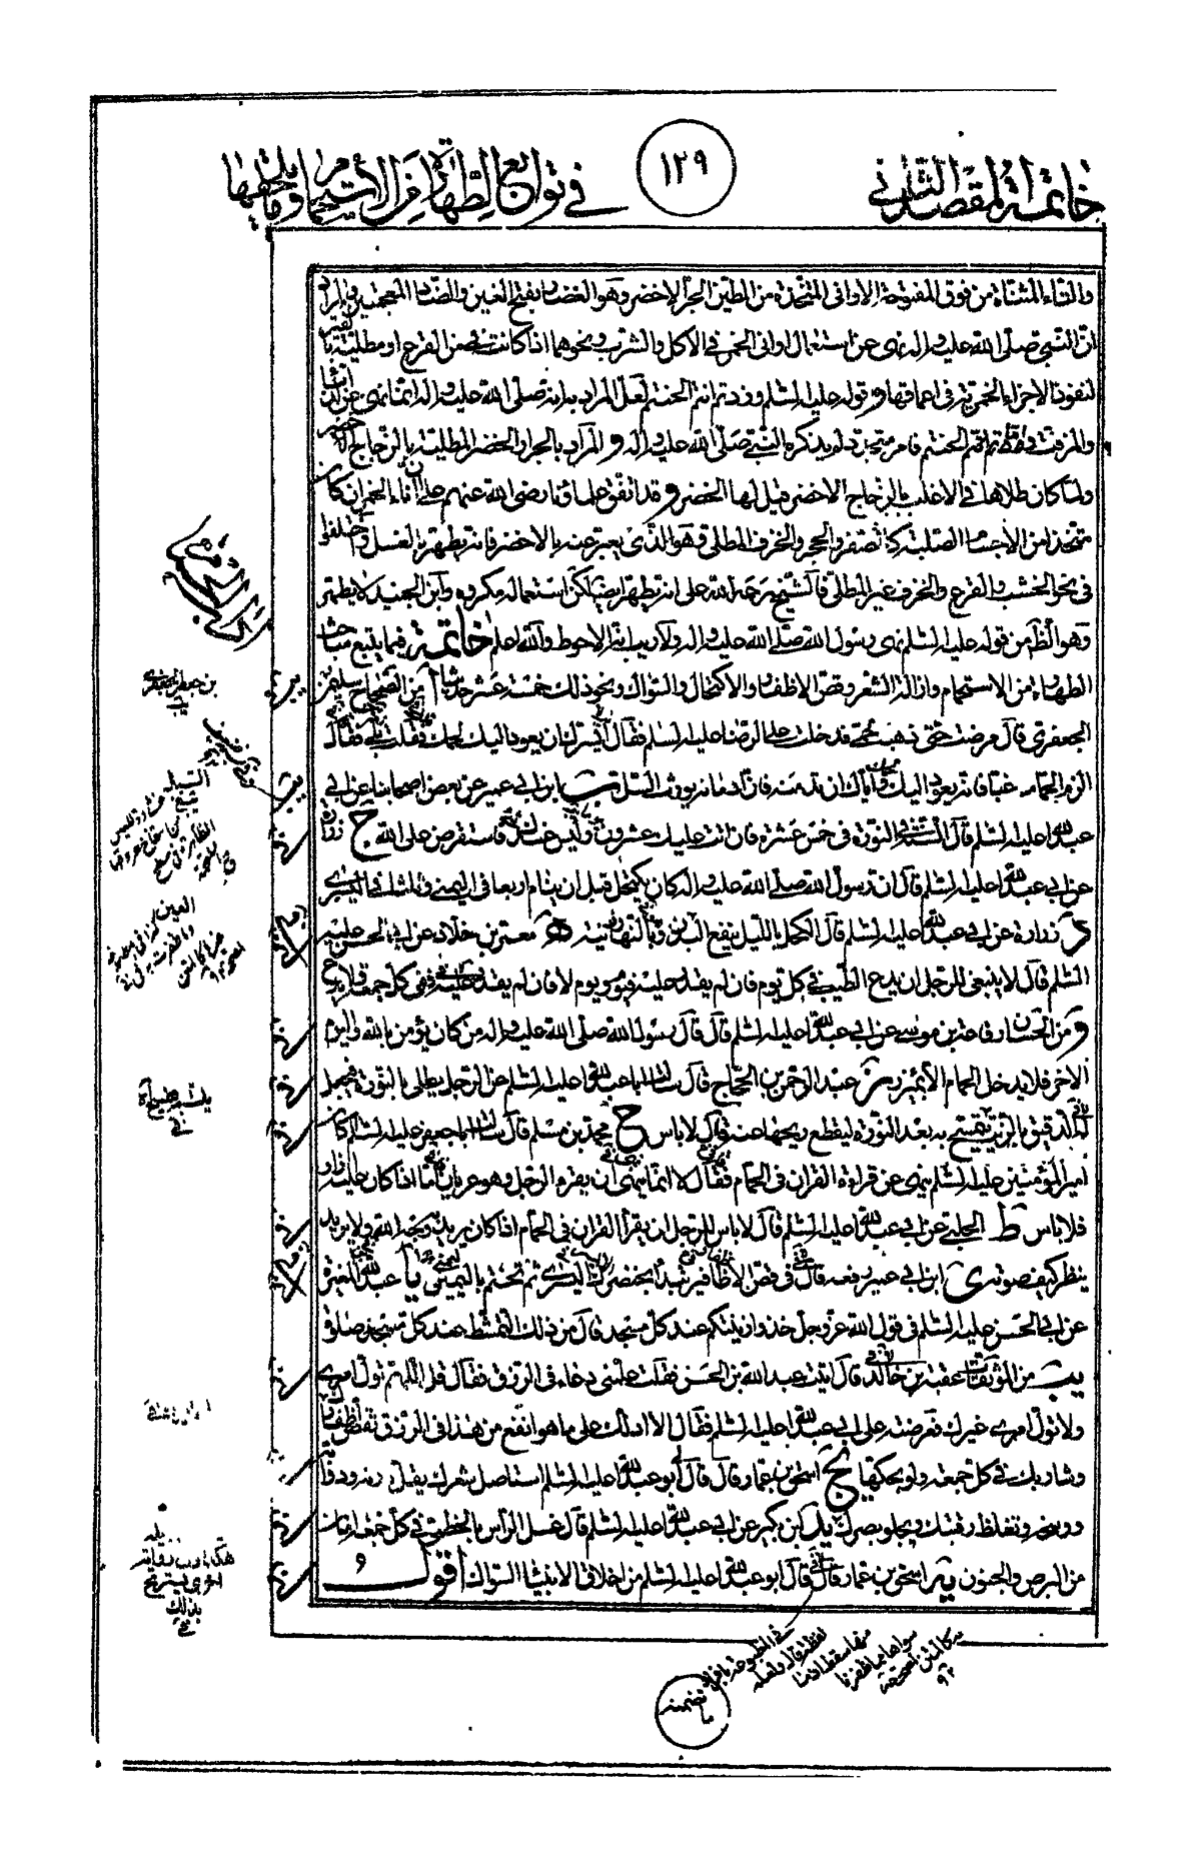 خاتمة المقصد الثاني
١٢٩
في توابع الطهارة من الاستحمام وما يلحقها
والتاء المثناة من فوق المفتوحة الاواني المتخذة من الطين الحر الاخضر وهو الغضار بفتح الغين والضاد المعجمتين والمراد
ان النبي صلى الله عليه واله نهى عن استعمال اواني الخمر في الاكل والشرب ونحوهما اذا كانت من القرع او مطلية بالقير
لنفوذ الاجزاء الخمرية في اعماقها وقوله عليه السلم وزدتم انتم الحنتم لعل المراد به انه صلى الله عليه واله انما نهى عن الدباء
والمزفت فقط ثم الحنتم فامر متجدد لم يذكره النبي صلى الله عليه واله والمراد بالجرار الخضر المطلية بالزجاج الاخضر
ولما كان طلاها في الاغلب بالزجاج الاخضر قيل لها الخضر وقد اتفق علماؤنا رضى الله عنهم على ان اناء الخمر ان كان
متخذا من الاجسام الصلبة كالصفر والحجر والخزف المطلي وهو الذي يعبر عنه بالاخضر فانه يطهر بالغسل واختلفوا
في نحو الخشب والقرع والخزف غير المطلي فالشيخ رحمه الله على انه يطهر ايضا لكن استعماله مكروه وابن الجنيد لا يطهر
وهو الظاهر من قوله عليه السلم نهى رسول الله صلى الله عليه واله ولا ريب انه الاحوط والله اعلم خاتمة فيما يتبع مباحث
الطهارة من الاستحمام وازالة الشعر وقص الاظفار والاكتحال والسواك ونحو ذلك خمسة عشر حديثا ا من الصحاح سليمان
الجعفري قال مرضت حتى ذهب لحمي فدخلت على الرضا عليه السلم فقال ايسرك ان يعود اليك لحمك فقلت بلى فقال
الزم الحمام غبا فانه يعود اليك لحمك واياك ان تدمنه فان ادمانه يورث السل ب ابن ابي عمير عن بعض اصحابنا عن ابي
عبد الله عليه السلم قال السنة في النورة في خمس عشرة فان اتت عليك عشرون وليس عندك فاستقرض على الله ج زرارة
عن ابي عبد الله عليه السلم قال ان رسول الله صلى الله عليه واله كان يكتحل قبل ان ينام اربعا في اليمنى وثلثا في اليسرى
د زرارة عن ابي عبد الله عليه السلم قال الكحل بالليل ينفع البدن وبالنهار زينة ه معمر بن خلاد عن ابي الحسن عليه
السلم قال لا ينبغي للرجل ان يدع الطيب في كل يوم فان لم يقدر عليه فيوم ويوم لا فان لم يقدر عليه ففي كل جمعة ولا يدع
و من الحسان رفاعة بن موسى عن ابي عبد الله عليه السلم قال قال رسول الله صلى الله عليه واله من كان يؤمن بالله واليوم
الاخر فلا يدخل الحمام الا بمئزر ز عبد الرحمن بن الحجاج قال سالت ابا عبد الله عليه السلم عن الرجل يطلي بالنورة فيجعل
له الدقيق بالزيت يتمسح به بعد النورة ليقطع ريحها عنه قال لا باس ح محمد بن مسلم قال سالت ابا جعفر عليه السلم اكان
امير المؤمنين عليه السلم ينهى عن قراءة القران في الحمام فقال لا انما نهى ان يقرء الرجل وهو عريان فاما اذا كان عليه ازار
فلا باس ط الحلبي عن ابي عبد الله عليه السلم قال لا باس للرجل ان يقرأ القران في الحمام اذا كان يريد به وجه الله ولا يريد
ينظر كيف صوته ي ابن ابي عمير رفعه قال في قص الاظافير تبدأ بخنصرك اليسرى ثم تختم باليمنى يا عبد الله بن المغيرة
عن ابي الحسن عليه السلم في قول الله عز وجل خذوا زينتكم عند كل مسجد قال من ذلك التمشط عند كل صلوة
يب من الموثقات عقبة بن خالد قال اتيت عبد الله بن الحسن فقلت علمني دعاء في الرزق فقال قل اللهم تول امري
ولا تول امري غيرك فعرضته على ابي عبد الله عليه السلم فقال الا ادلك على ما هو انفع من هذا في الرزق تقص اظفارك
وشاربك في كل جمعة ولو بحكها يج اسحق بن عمار قال قال ابو عبد الله عليه السلم استاصل شعرك يقل درنه ودوابه
ووسخه وتغلظ رقبتك ويجلو بصرك يد ابن بكير عن ابي عبد الله عليه السلم قال غسل الراس بالخطمي في كل جمعة امان
من البرص والجنون يه اسحق بن عمار قال قال ابو عبد الله عليه السلم من اخلاق الانبياء السواك اقول
بن جعفر الجعفري
العين
ما تضمنه